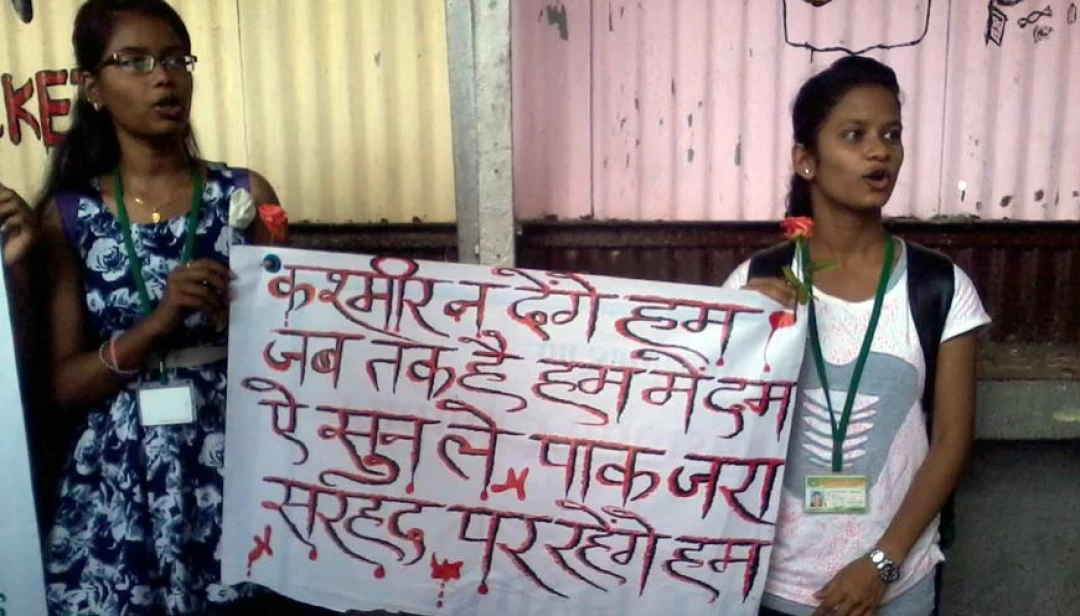 KET
कश्मीर न देंगे हम
जब तक है हम में दम
ऐ सुन ले पाक जरा
सरहद पर रहेंगे हम